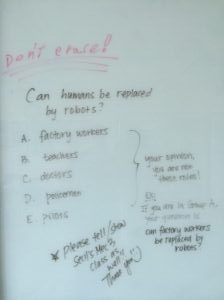 Don't erase!
Can humans be replaced
by robots?
A. factory workers
B. teachers
C. doctors
D. policemen
E. pilots
your opinion,
you are not
these roles!
EX:
If you are in Group A,
your question is
can factory workers
be replaced by
robots?
* Please tell/show
Mr.
class as
well,
Thank you